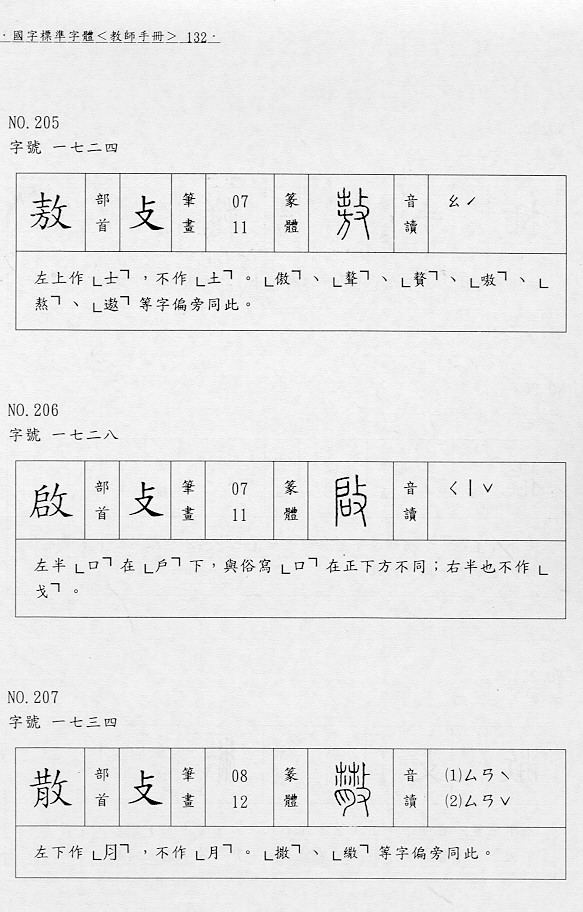 ·國字標準字體<教師手冊> 132·
NO.205
字號 一七二四
敖 部首 攴 筆畫 07 11 篆體 敖 音讀 ㄠˊ
左上作「士」，不作「土」。「傲」、「聱」、「贅」、「嗷」、「
熬」、「遨」等字偏旁同此。
NO.206
字號 一七二八
啟 部首 攴 筆畫 07 11 篆體 啟 音讀 ㄑㄧˇ
左半「口」在「戶」下，與俗寫「口」在正下方不同；右半也不作「
戈」。
NO.207
字號 一七三四
散 部首 攴 筆畫 08 12 篆體 散 音讀 ⑴ㄙㄢˋ ⑵ㄙㄢˇ
左下作「⺼」，不作「月」。「撒」、「繖」等字偏旁同此。